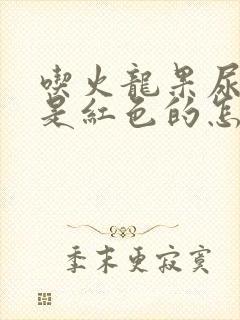 喫火龍果尿
是紅色的怎
季末更寂寞